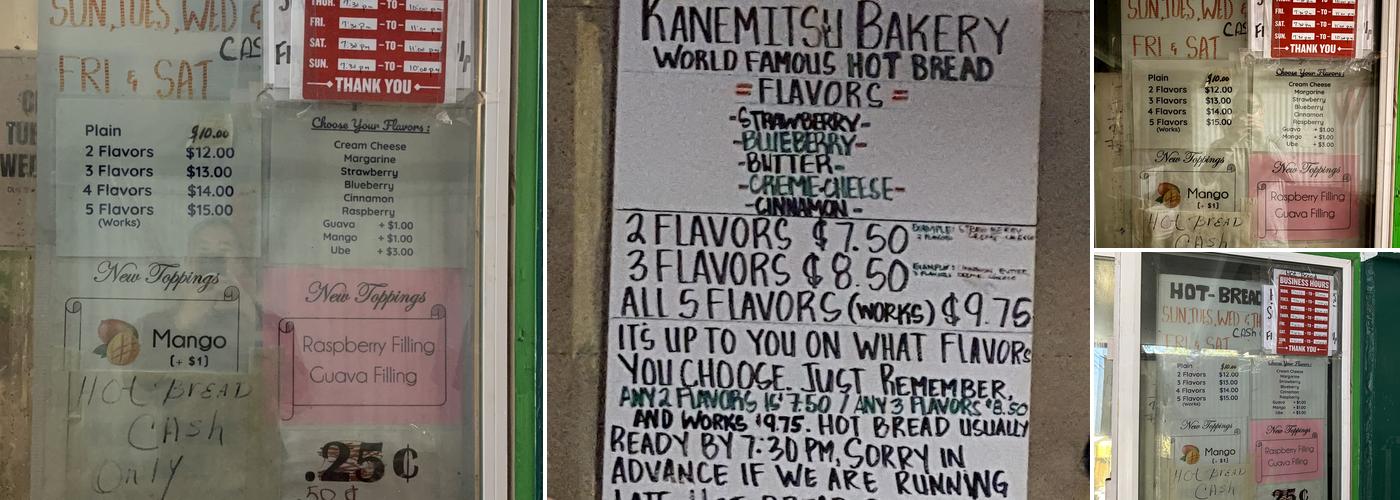 SUN,TUES,WED &
CAS
FRI & SAT
THUR. 7:30 pm -TO-
FRI. 7:30 pm -TO- 11:00 pm
SAT. 7:30 pm -TO- 11:00 pm
SUN. 7:30 pm -TO- 10:00 pm
THANK YOU
Plain $10.00
2 Flavors $12.00
3 Flavors $13.00
4 Flavors $14.00
5 Flavors $15.00
(Works)
Choose Your Flavors:
Cream Cheese
Margarine
Strawberry
Blueberry
Cinnamon
Raspberry
Guava + $1.00
Mango + $1.00
Ube + $3.00
New Toppings
Mango
[+ $1]
New Toppings
Raspberry Filling
Guava Filling
HOT BREAD
CASH
Only
.25¢
50¢
KANEMITSU BAKERY
WORLD FAMOUS HOT BREAD
= FLAVORS =
-STRAWBERRY-
-BLUEBERRY-
-BUTTER-
-CREME-CHEESE-
-CINNAMON-
2 FLAVORS $7.50
3 FLAVORS $8.50
ALL 5 FLAVORS (WORKS) $9.75
IT'S UP TO YOU ON WHAT FLAVORS
YOU CHOOSE. JUST REMEMBER,
ANY 2 FLAVORS IS $7.50 / ANY 3 FLAVORS $8.50
AND WORKS $9.75. HOT BREAD USUALLY
READY BY 7:30 PM, SORRY IN
ADVANCE IF WE ARE RUNNING
SUN,TUES,WED &
CAS
FRI & SAT
FRI. -TO-
SAT. -TO-
SUN. -TO-
THANK YOU
Plain $10.00
2 Flavors $12.00
3 Flavors $13.00
4 Flavors $14.00
5 Flavors $15.00
(Works)
Choose Your Flavors:
Cream Cheese
Margarine
Strawberry
Blueberry
Cinnamon
Raspberry
Guava + $1.00
Mango + $1.00
Ube + $3.00
New Toppings
Mango
[+ $1]
New Toppings
Raspberry Filling
Guava Filling
HOT BREAD
CASH
HOT-BREAD
SUN,TUES,WED & TH
CASH
FRI & SAT
BUSINESS HOURS
THANK YOU
Plain $10.00
2 Flavors $12.00
3 Flavors $13.00
4 Flavors $14.00
5 Flavors $15.00
(Works)
Choose Your Flavors:
Cream Cheese
Margarine
Strawberry
Blueberry
Cinnamon
Raspberry
Guava + $1.00
Mango + $1.00
Ube + $3.00
New Toppings
Mango
[+ $1]
New Toppings
Raspberry Filling
Guava Filling
HOT BREAD
CASH
.25¢